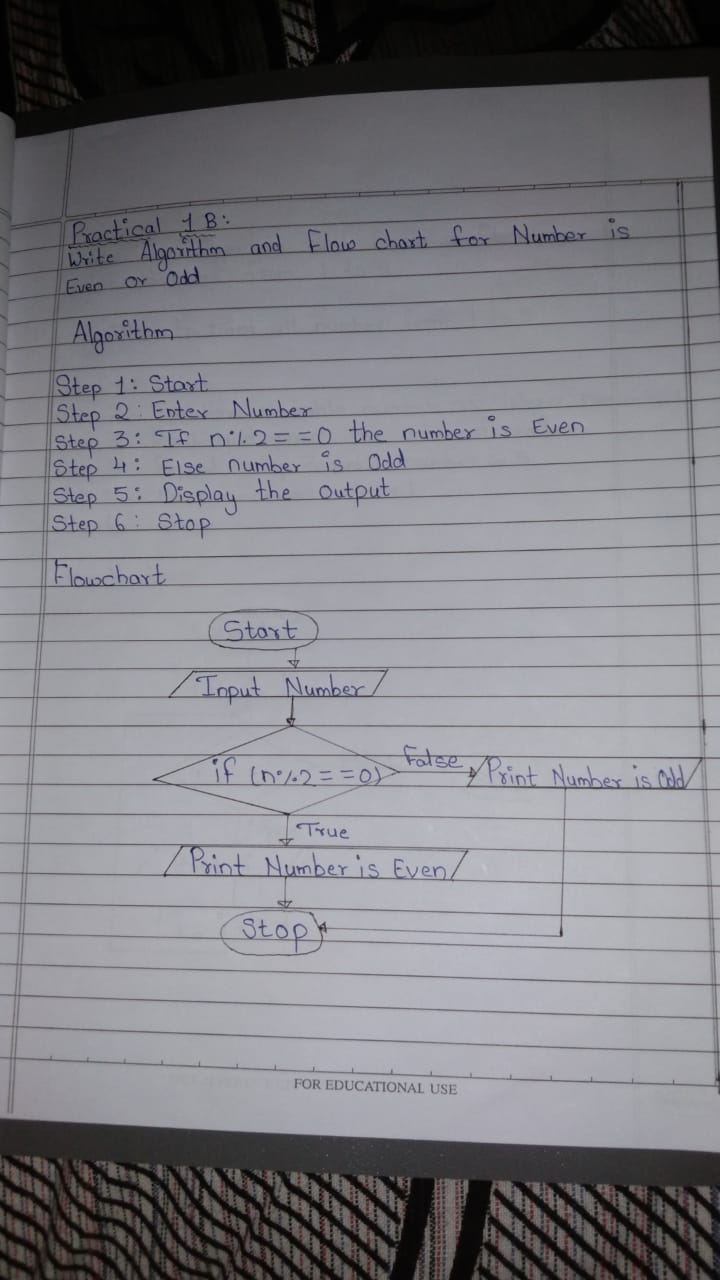 Practical 1 B:
Write Algorithm and Flow chart for Number is
Even or Odd
Algorithm
Step 1: Start
Step 2: Enter Number
Step 3: If n%2==0 the number is Even
Step 4: Else number is Odd
Step 5: Display the output
Step 6: Stop
Flowchart
Start
Input Number
if (n%2==0)
False
Print Number is Odd
True
Print Number is Even
Stop
FOR EDUCATIONAL USE